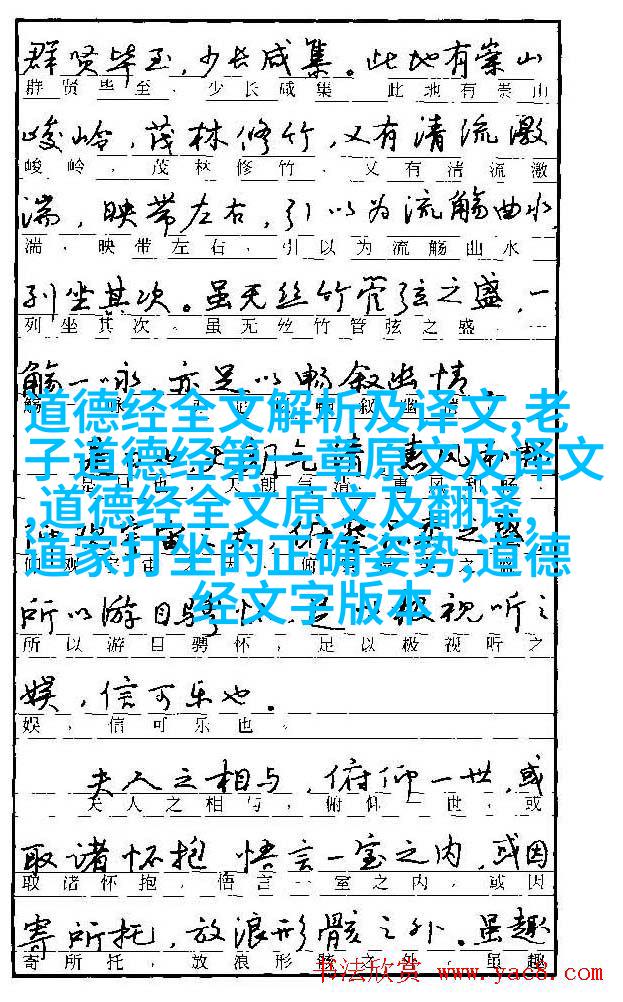 群贤毕至,少长咸集。此地有崇山
群贤毕至、少长咸集 此地有崇山
峻岭,茂林修竹,又有清流激
峻岭,茂林修竹、又有清流激
湍,映带左右,引以为流觞曲水,
湍,映带左右,引以为流觞曲水
列坐其次。虽无丝竹管弦之盛,一
列坐其次。虽无丝竹管弦之盛,一
觞一咏,亦足以畅叙幽情。
道德经全文解析及译文,老
子道德经第一章原文及译文
,道德经全文原文及翻译,
道家打坐的正确姿势,道德
经文字版本
是日也,天朗气清,惠风和畅,
所以游目骋怀,足以极视听之
所以游目骋怀,足以极视听之
娱,信可乐也。
娱,信可乐也。
夫人之相与,俯仰一世,或
夫人之相与,俯仰一世,或
取诸怀抱 悟言一室之内,或因
取诸怀抱,悟言一室之内,或因
寄所托,放浪形骸之外。虽趣
寄所托,放浪形骸之外。虽趣
书法欣赏 www.yac8.com